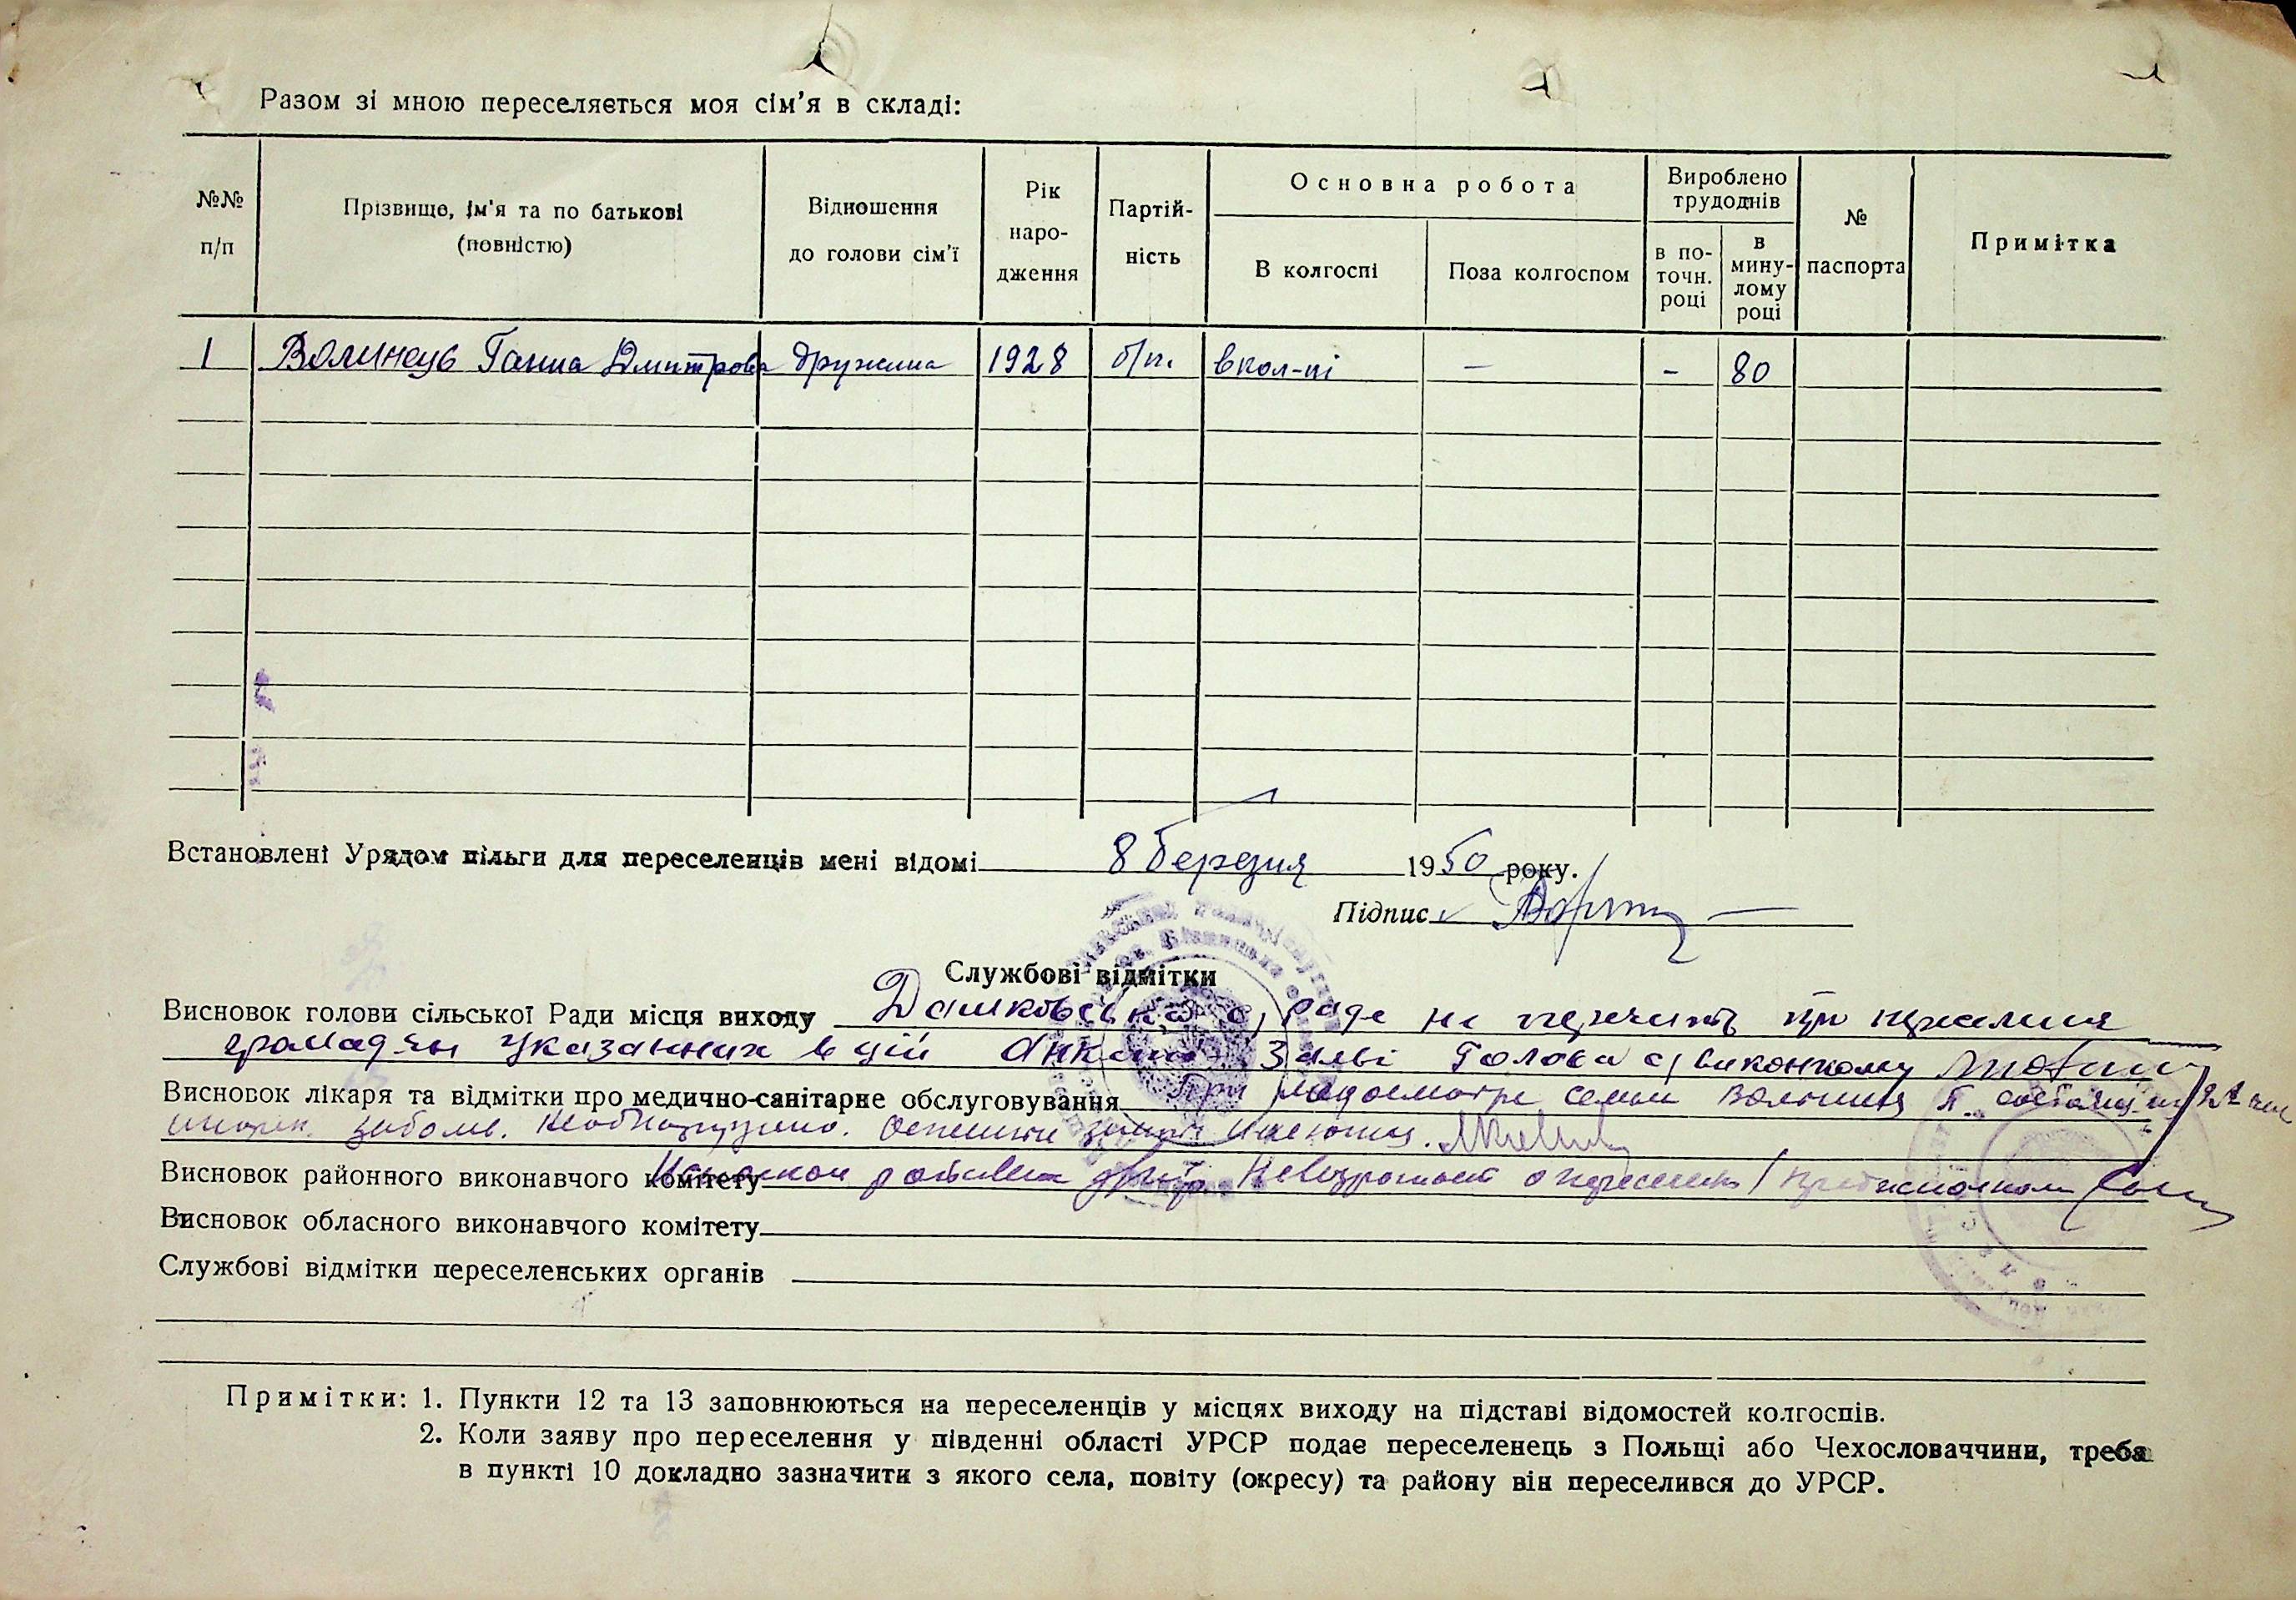 Разом зі мною переселяється моя сім'я в складі:
№№ п/п
Прізвище, ім'я та по батькові (повністю)
Відношення до голови сім'ї
Рік наро- дження
Партій- ність
Основна робота
В колгоспі
Поза колгоспом
Вироблено трудоднів
в по- точн. році
в мину- лому році
№ паспорта
Примітка
1 Волинець Ганна Дмитрова дружина 1928 б/п. в кол-пі — - 80
Встановлені Урядом пільги для переселенців мені відомі 8 березня 1950 року.
Підпис
Службові відмітки
Висновок голови сільської Ради місця виходу Дашковська с/рада не перечить при переселення
громадян указанних в цій Анкеті Заяві Голова с/виконкому
Висновок лікаря та відмітки про медично-санітарне обслуговування При медосмотре семьи Волинец П.
заболев. Необнаружено. имеются.
Висновок районного виконавчого комітету о переселен
Висновок обласного виконавчого комітету
Службові відмітки переселенських органів
Примітки: 1. Пункти 12 та 13 заповнюються на переселенців у місцях виходу на підставі відомостей колгоспів.
2. Коли заяву про переселення у південні області УРСР подає переселенець з Польщі або Чехословаччини, треба
в пункті 10 докладно зазначити з якого села, повіту (окресу) та району він переселився до УРСР.